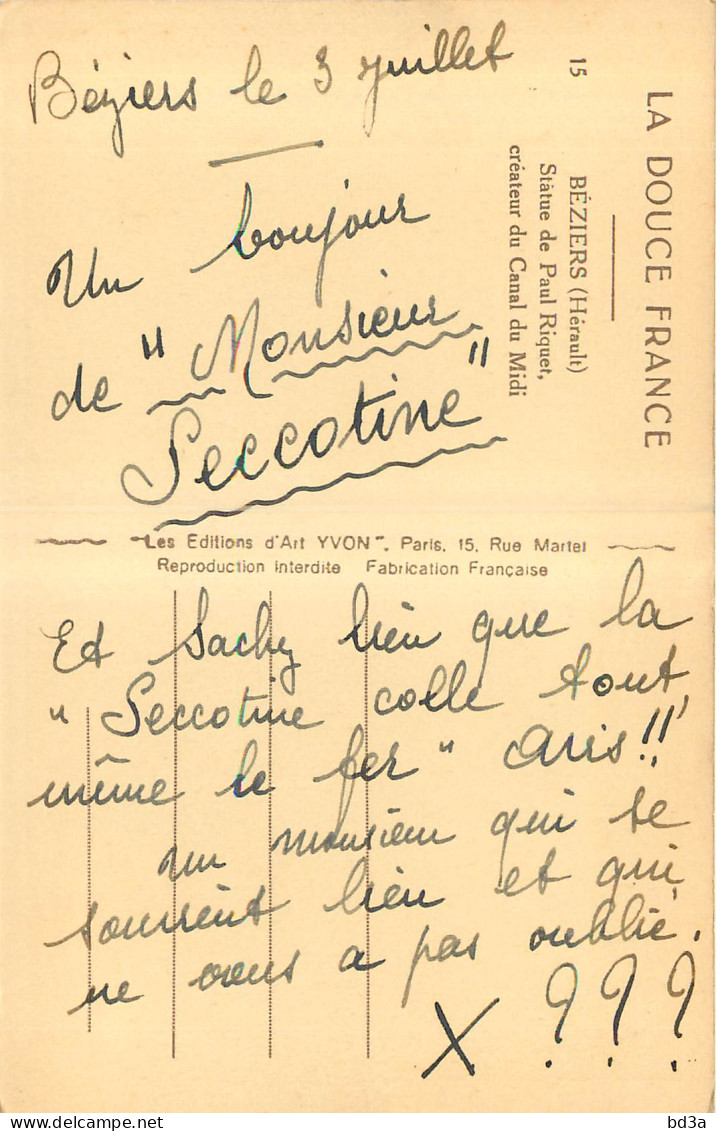 Béziers le 3 Juillet
Un bonjour
de "Monsieur
Seccotine"
LA DOUCE FRANCE
15 BÉZIERS (Hérault)
Statue de Paul Riquet,
créateur du Canal du Midi
"Les Editions d'Art YVON", Paris, 15, Rue Martel
Reproduction Interdite Fabrication Française
Et sachez bien que la
"Seccotine colle tout,
même le fer" avis!!
Un monsieur qui se
souvient bien et qui
ne vous a pas oublié.
X ???
bd3a